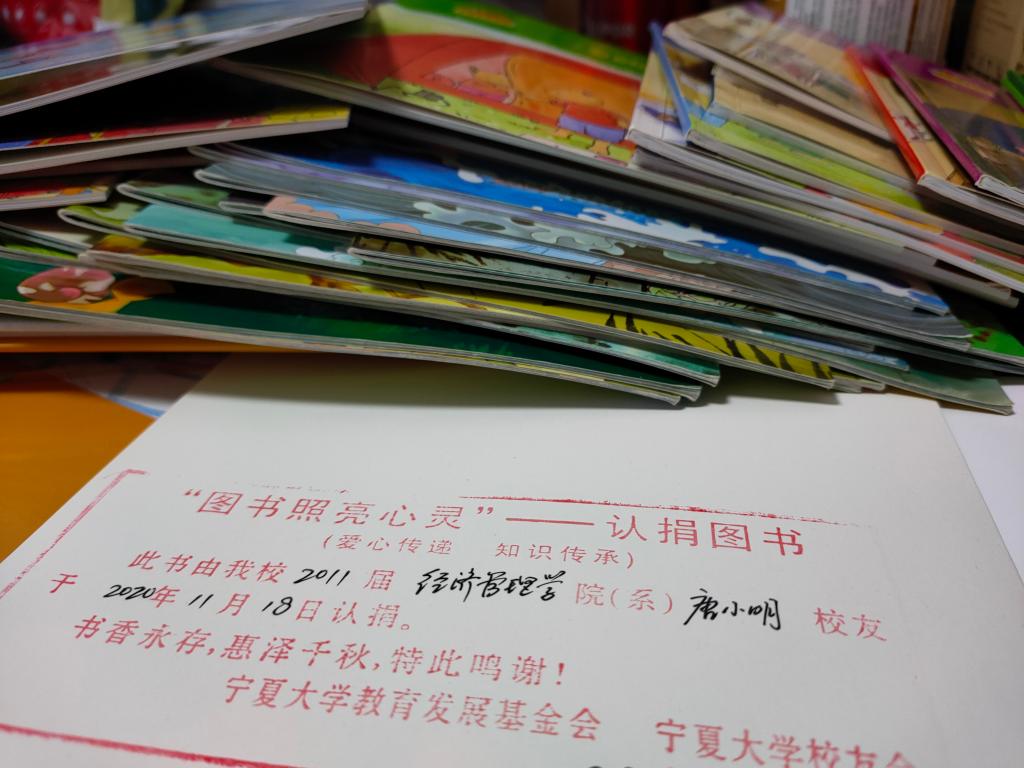 “图书照亮心灵”——认捐图书
(爱心传递 知识传承)
此书由我校 2011 届 经济管理学 院(系) 唐小明 校友
于 2020年 11 月 18日认捐。
书香永存,惠泽千秋,特此鸣谢!
宁夏大学教育发展基金会 宁夏大学校友会